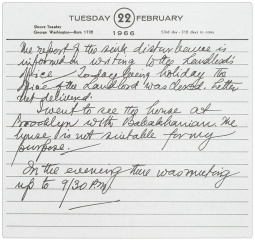 TUESDAY 22 FEBRUARY
Shrove Tuesday
George Washington—Born 1732
1966
53rd day—312 days to come
The report of the sink disturbance is
informed in writing to the landlord's
office. Today being holiday the
office of the landlord was closed. Letter
not delivered.
I went to see the house at
Brooklyn with Babakhanian. The
house is not suitable for my
purpose.
In the evening there was meeting
up to 9/30 P.M.